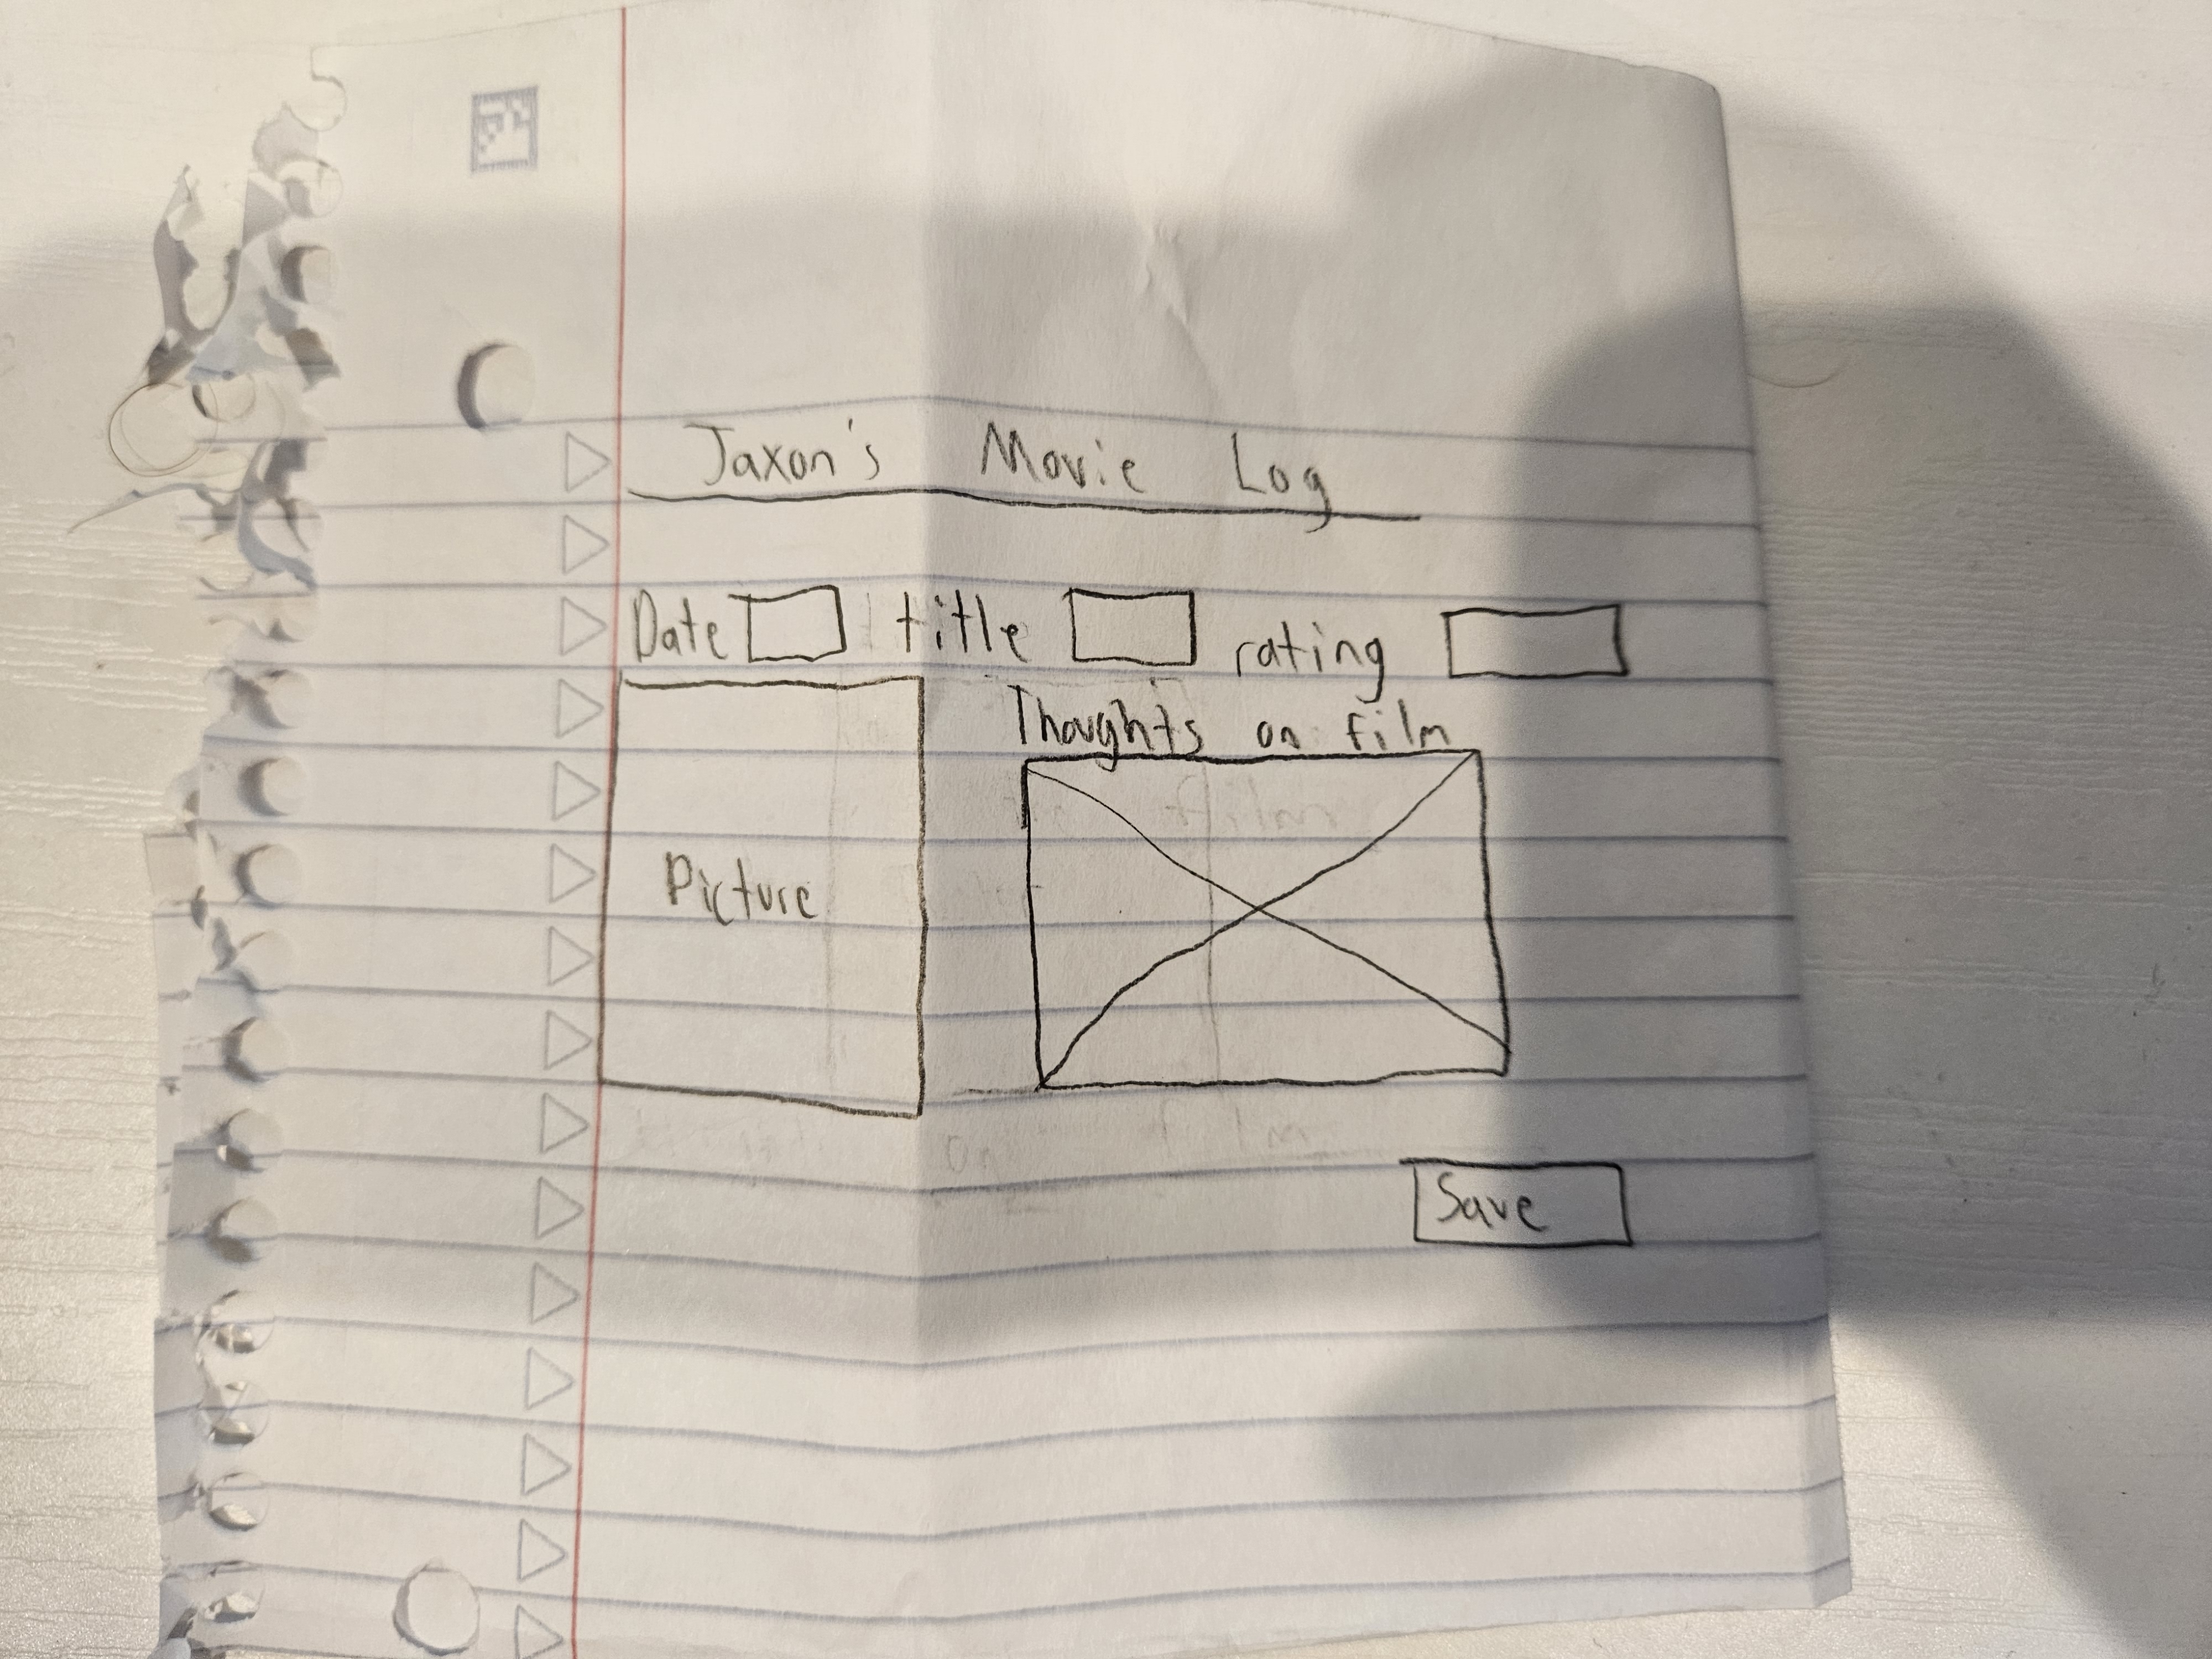 Jaxon's Movie Log
Date title rating
Thoughts on film
Picture
Save